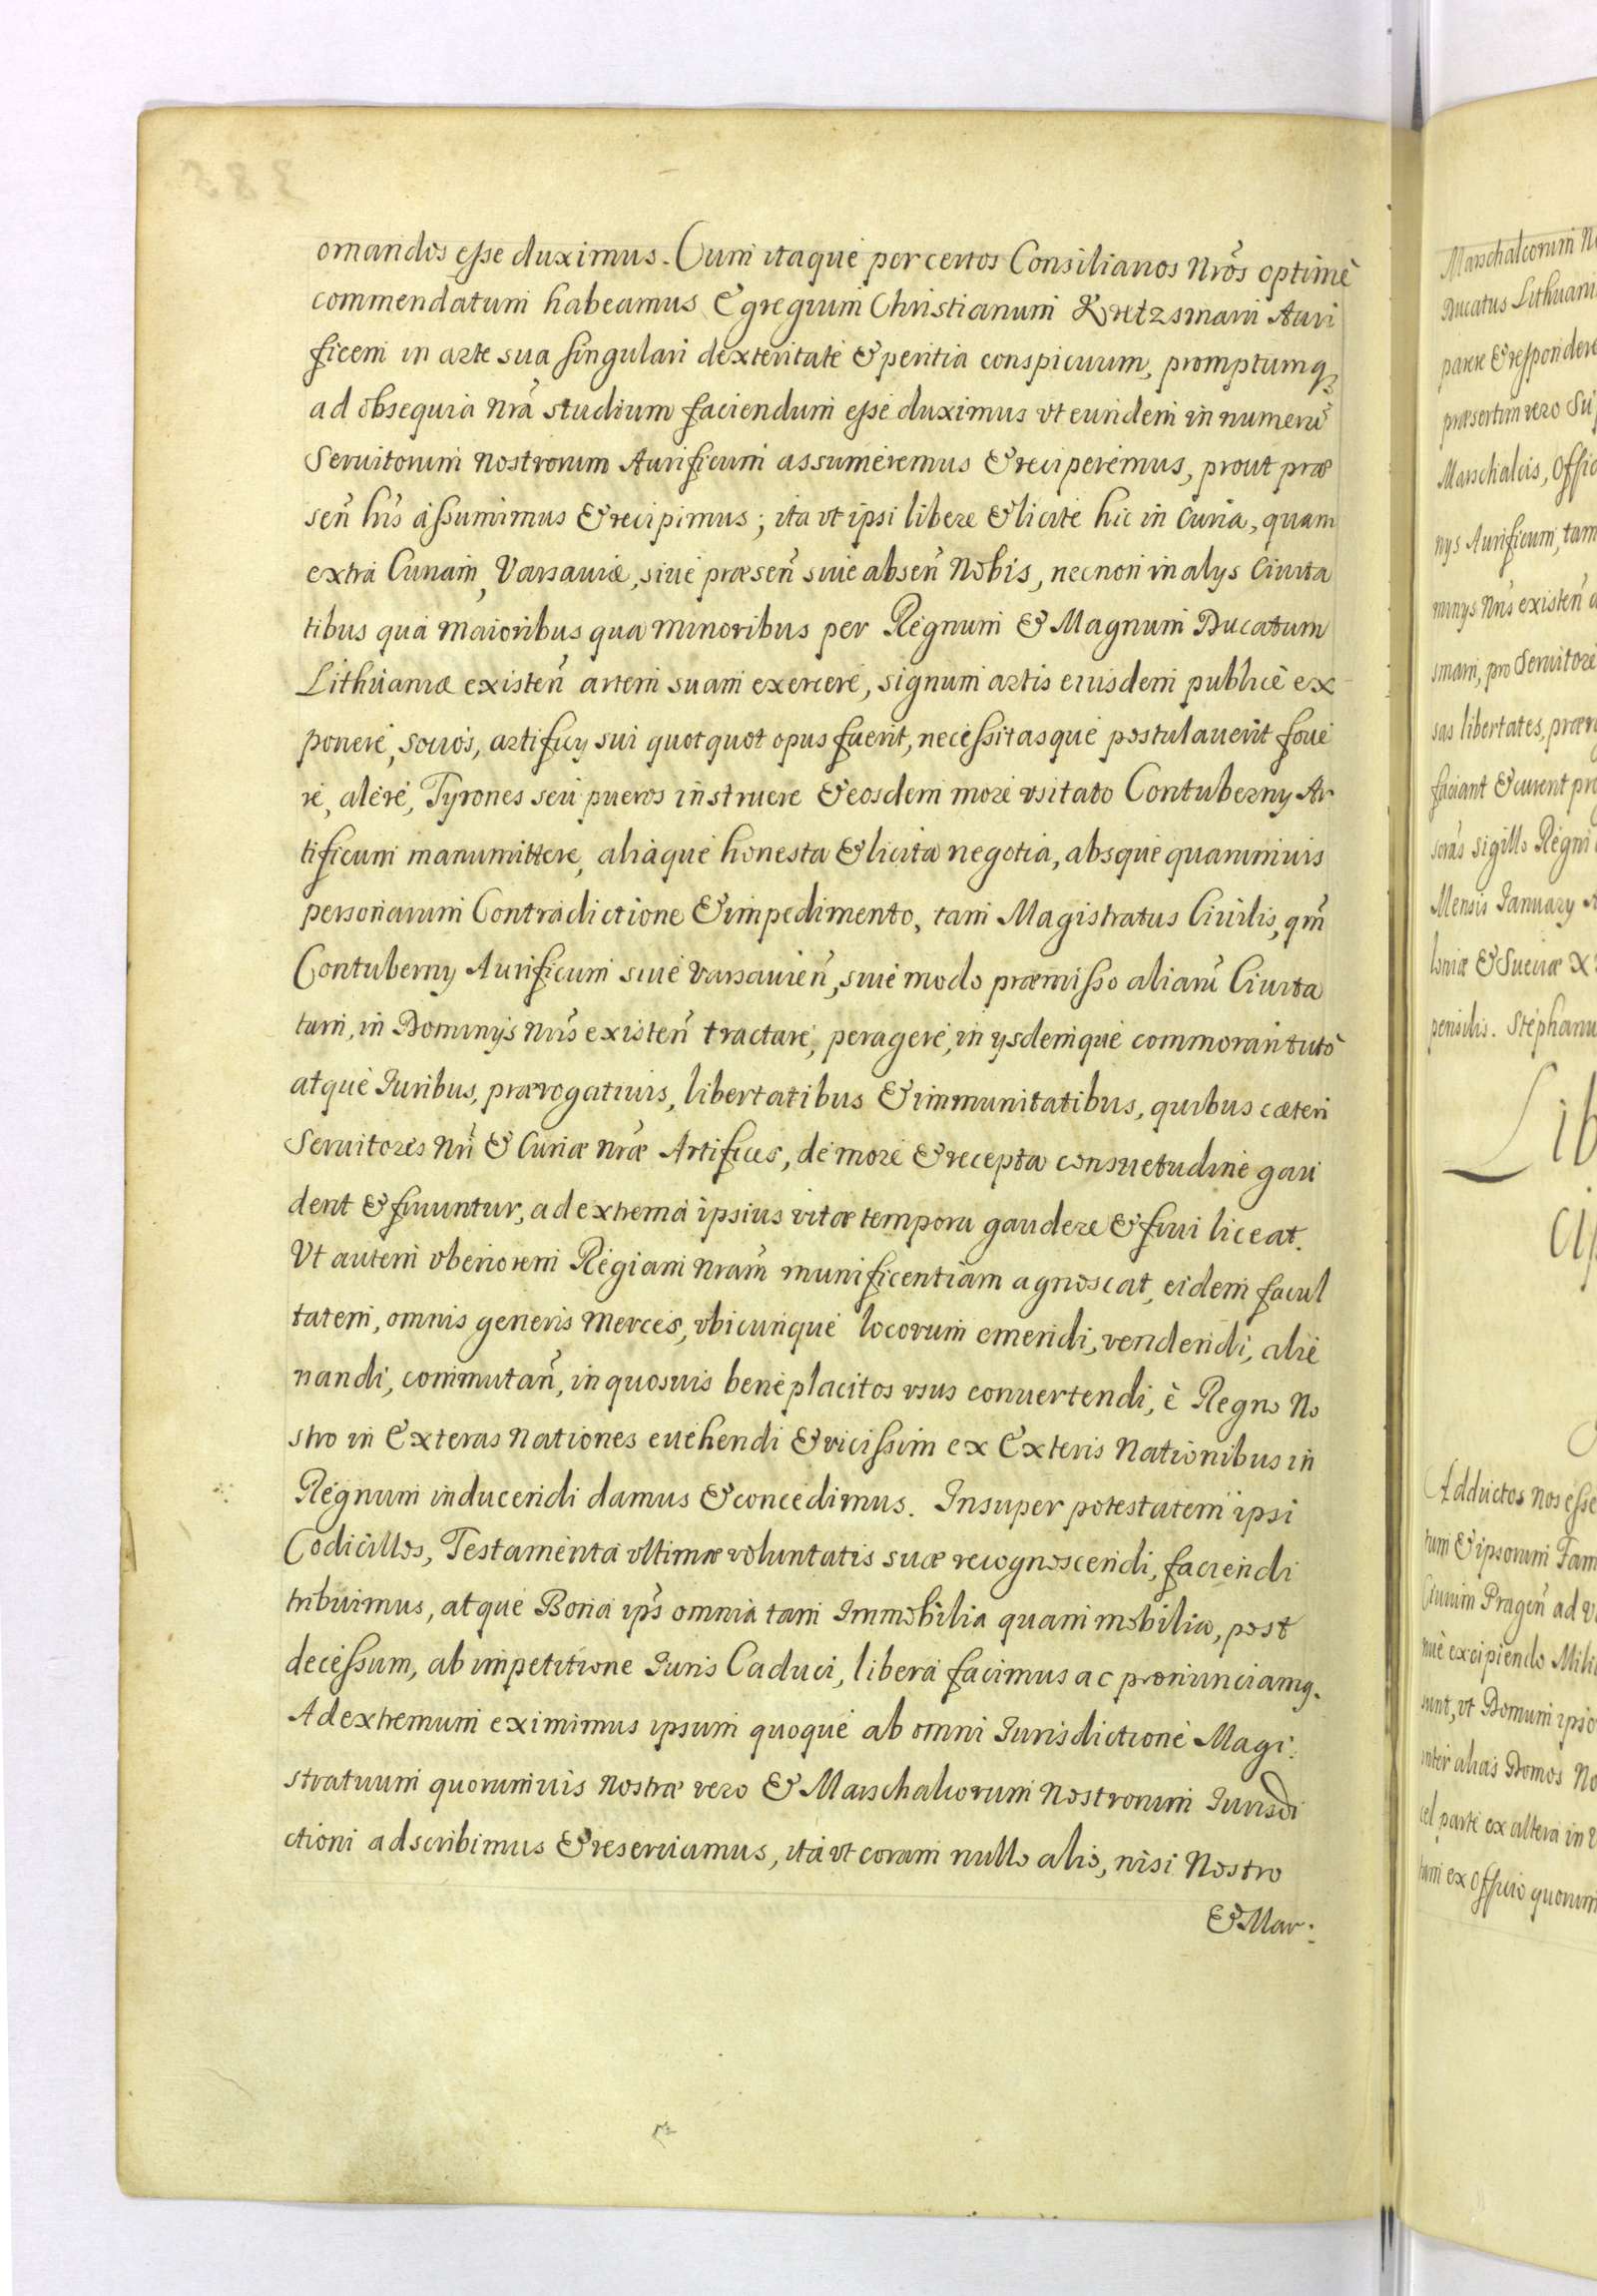 ornandos esse duximus. Cum itaque per certos Consiliarios Nrōs optimè
commendatum habeamus Egregium Christianum Kretzsmarn Auri
ficem in arte sua singulari dexteritate & peritia conspicuum, promptumq
ad obsequia Nrā studium faciendum esse duximus vt eundem in numerū
Seruitorum Nostrorum Aurificum assumeremus & reciperemus, prout præ
señ his assumimus & recipimus; ita vt ipsi libere & licite hic in Curia, quam
extra Curiam, Varsauiæ, siue præseñ siue abseñ Nobis, necnon in alijs Ciuita
tibus qua Maioribus qua Minoribus per Regnum & Magnum Ducatum
Lithuaniæ existeñ artem suam exercere, signum artis eiusdem publicè ex
ponere, socios, artificij sui quotquot opus fuerit, necessitasque postulauerit foue
re, alere, Tyrones seu pueros instruere & eosdem more vsitato Contubernij Ar
tificum manumittere, aliaque honesta & licita negotia, absque quarumuis
personarum Contradictione & impedimento, tam Magistratus Ciuilis, qm̄
Contubernij Aurificum siue Varsauieñ, siue modo præmisso aliarū Ciuita
tum, in Dominijs Nrīs existeñ tractare, peragere, in ijsdemque commorari tutò
atque Iuribus, prærogatiuis, libertatibus & immunitatibus, quibus cæteri
Seruitores Nrī & Curiæ Nræ Artifices, de more & recepta consuetudine gau
dent & fruuntur, ad extrema ipsius vitæ tempora gaudere & frui liceat.
Vt autem vberiorem Regiam Nram̄ munificentiam agnoscat, eidem facul
tatem, omnis generis Merces, vbicunque locorum emendi, vendendi, alie
nandi, commutañ, in quosuis beneplacitos vsus conuertendi, è Regno No
stro in Exteras Nationes euehendi & vicissim ex Exteris Nationibus in
Regnum inducendi damus & concedimus. Insuper potestatem ipsi
Codicillos, Testamenta vltimæ voluntatis suæ recognoscendi, faciendi
tribuimus, atque Bona ips̄ omnia tam Immobilia quam mobilia, post
decessum, ab impetitione Iuris Caduci, libera facimus ac pronunciamq.
Ad extremum eximimus ipsum quoque ab omni Iurisdictione Magi:
stratuum quorumuis Nostræ vero & Marschalcorum Nostrorum Iurisdi
ctioni adscribimus & reseruamus, ita vt coram nullo alio, nisi Nostro
& Mar:
Marschalcorum
Ducatus Lithuani
parere & respondere
præsertim vero
Marschalcis,
nijs Aurificum, tam
minijs Nrīs existeñ
smarn, pro Seruitore
sas libertates,
faciant & curent
sigillo Regni
Mensis Ianuarij
loniæ & Sueciæ
pensilis. Stephanu
Lib
Adductos nos esse
tum & ipsorum Fam
Ciuium Prageñ ad
excipiendo
sunt, vt Domum
inter alias Domos
parte ex altera in
ex Officio quorum